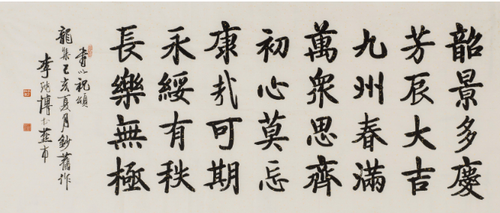 韶景多慶
芳辰大吉
九州春滿
萬衆思齊
初心莫忘
康我可期
永綏有秩
長樂無極
書以祝頌
龍集己亥夏月鈔舊作
李